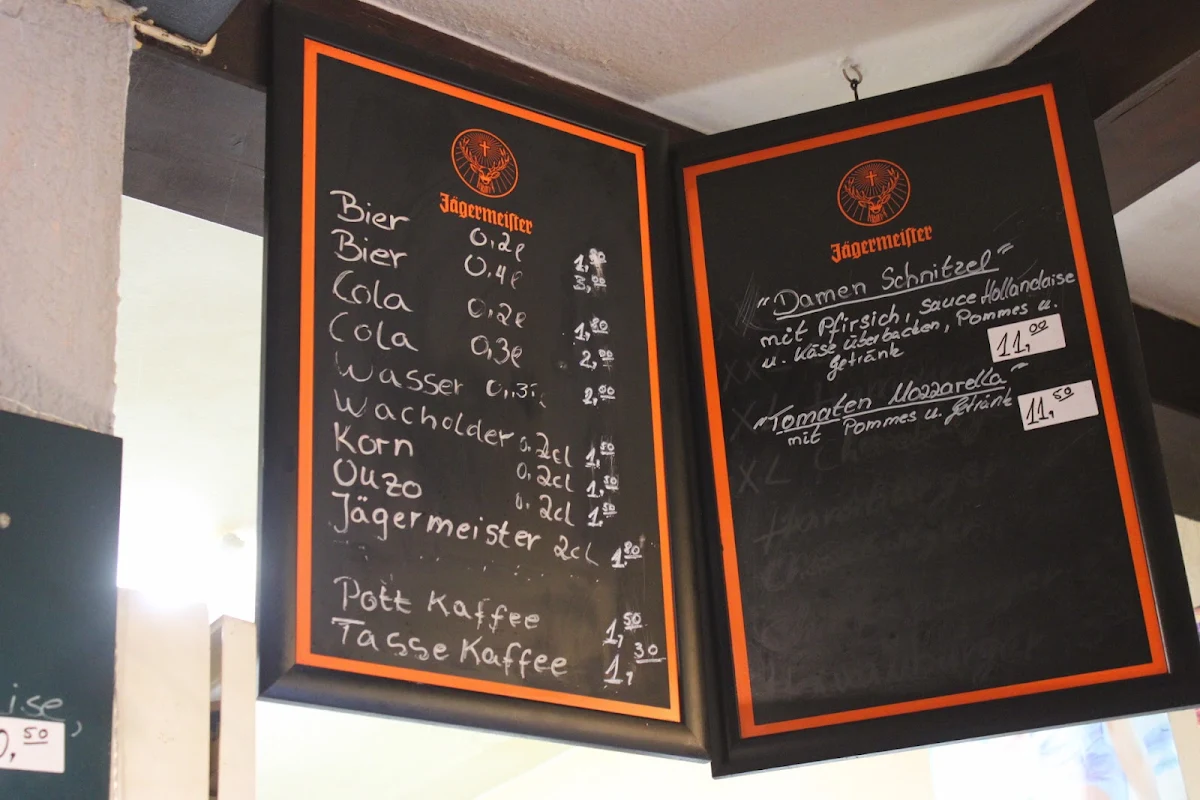 Jägermeister
Bier 0,2l 1,50
Bier 0,4l 3,00
Cola 0,2l 1,80
Cola 0,3l 2,00
Wasser 0,3 2,00
Wacholder 0,2cl 1,50
Korn 0,2cl 1,50
Ouzo 0,2cl 1,50
Jägermeister 2cl 1,80
Pott Kaffee 1,50
Tasse Kaffee 1,30
Jägermeister
"Damen Schnitzel"
mit Pfirsich, sauce Hollandaise
u. Käse überbacken, Pommes u.
getränk 11,00
"Tomaten Mozzarella"
mit Pommes u. getränk 11,50
ise,
0,50